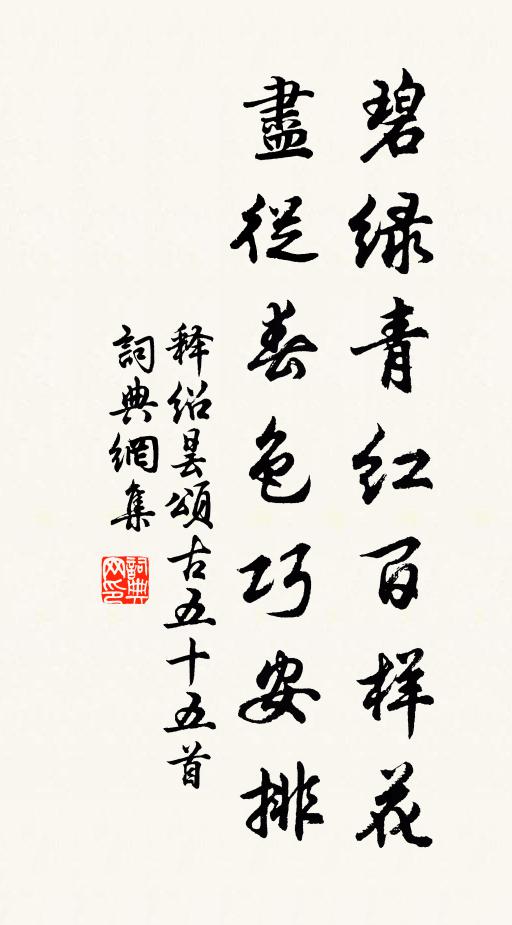 碧绿青红百样花
盡從春色巧安排
释绍昙頌古五十五首
詞典網集
詞典网印